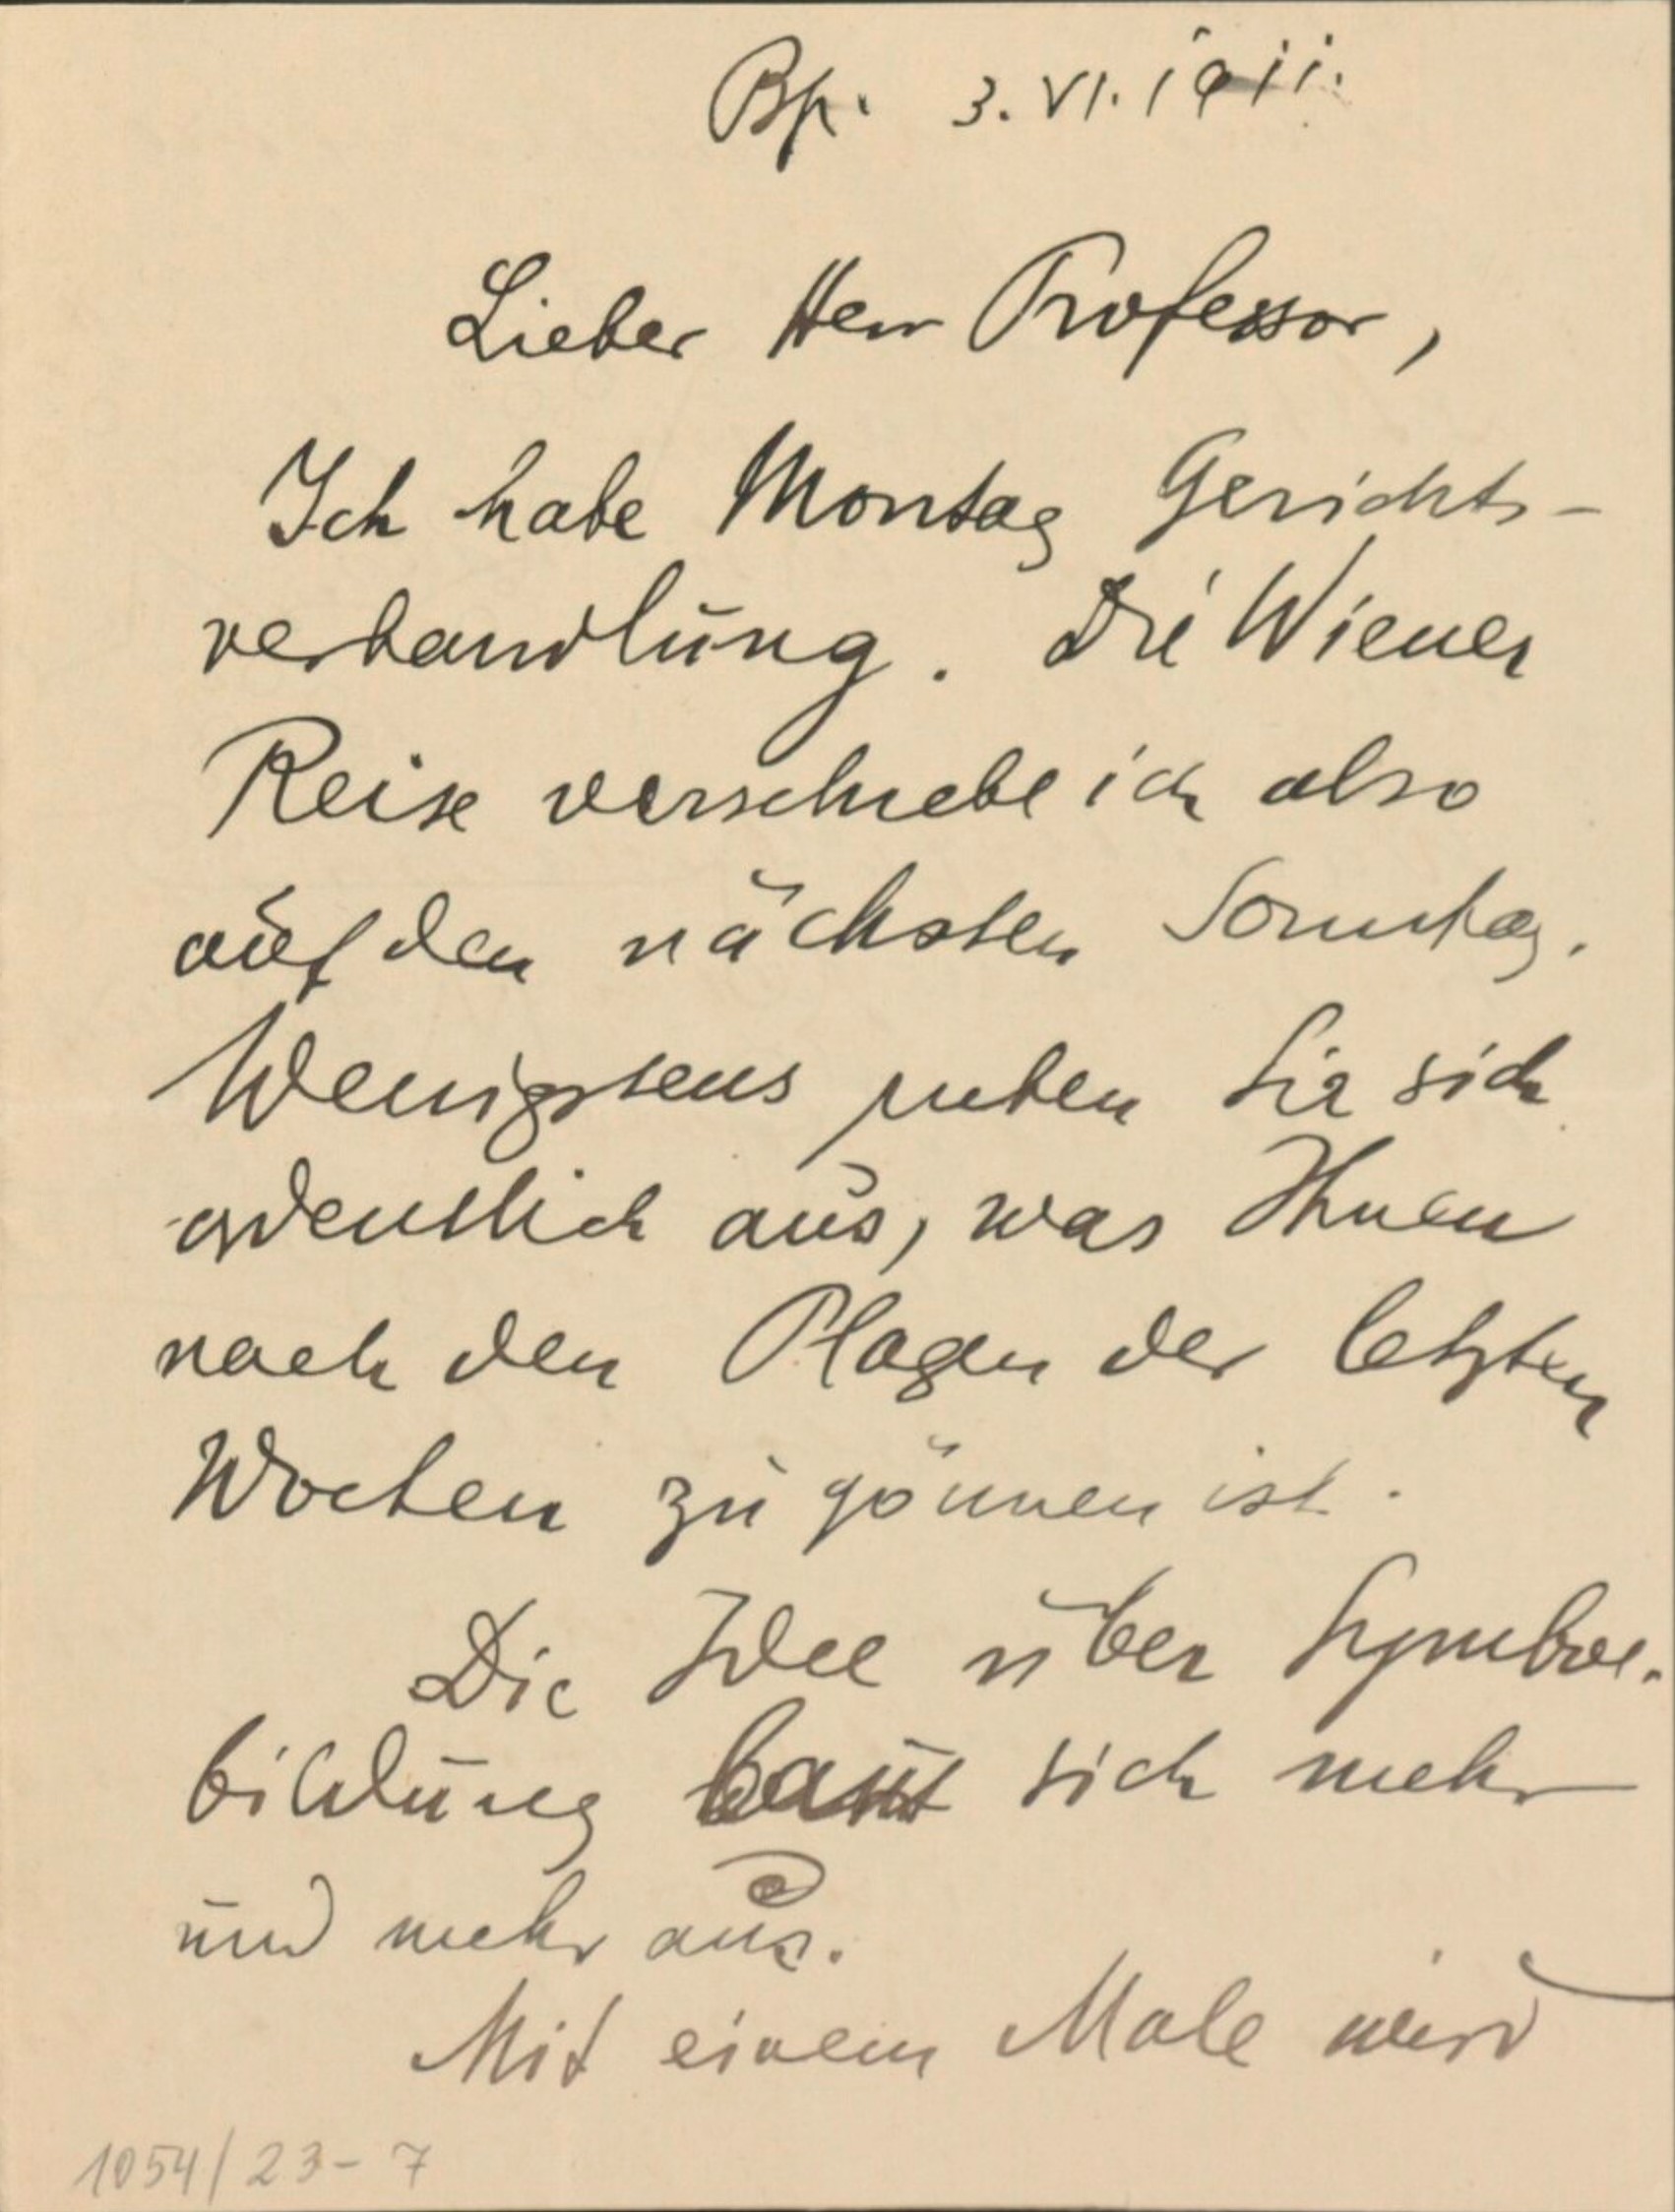 Bp. 3. VI. 1911.
Lieber Herr Professor,
Ich habe Montag Gerichts-
verhandlung. Die Wiener
Reise verschiebe ich also
auf den nächsten Sonntag.
Wenigstens ruhen Sie sich
ordentlich aus, was Ihnen
nach den Plagen der letzten
Wochen zu gönnen ist.
Die Idee über Symbol-
bildung baut sich mehr
und mehr aus.
Mit einem Male wird
1054/23-7